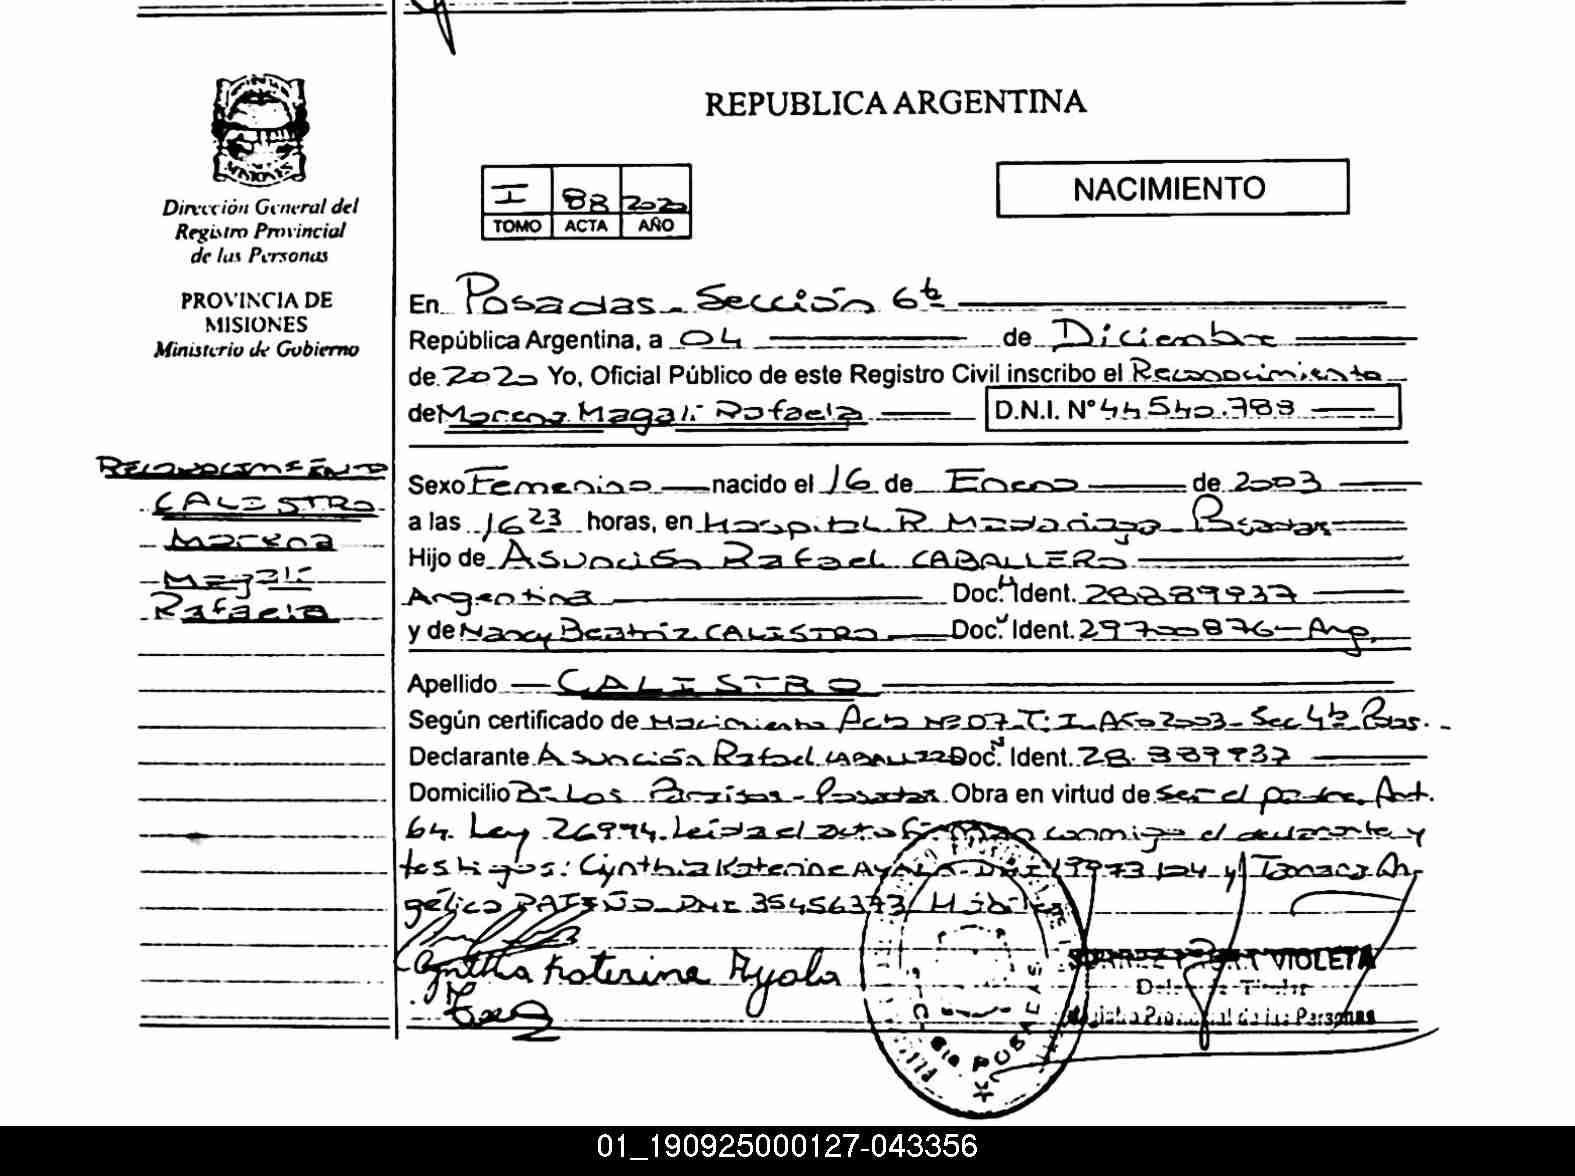 REPUBLICA ARGENTINA
Dirección General del
Registro Provincial
de las Personas
PROVINCIA DE
MISIONES
Ministerio de Gobierno
I 88 2020
TOMO ACTA AÑO
NACIMIENTO
En Posadas - Sección 6ta
República Argentina, a 04 de Diciembre
de 2020 Yo, Oficial Público de este Registro Civil inscribo el Reconocimiento
de Morena Magalí Rafaela D.N.I. N° 44.540.788
RECONOCIMIENTO
CALISTRO
Morena
Magalí
Rafaela
Sexo Femenino nacido el 16 de Enero de 2003
a las 16 23 horas, en Hospital R. Madariaga Posadas
Hijo de Asunción Rafael CABALLERO
Argentina Doc. Ident. 28889937
y de Nancy Beatriz CALISTRO Doc. Ident. 29700876 - Arg.
Apellido CALISTRO
Según certificado de Nacimiento Acta Nº 07 - T: I. Año 2003 - Sec 4ta Pdas.
Declarante Asunción Rafael Doc. Ident. 28.889937
Domicilio Bº Los Paraísos - Posadas Obra en virtud de ser el padre. Art.
64. Ley 26994. Leída el acta firman conmigo el declarante y
testigos: Cynthia Katerine AYALA - DNI y Tamara An-
gélica PATIÑO DNI 35456373 Hábiles
Cynthia Katerine Ayala
VIOLETA
Registro Provincial de las Personas
POSADAS
01_190925000127-043356